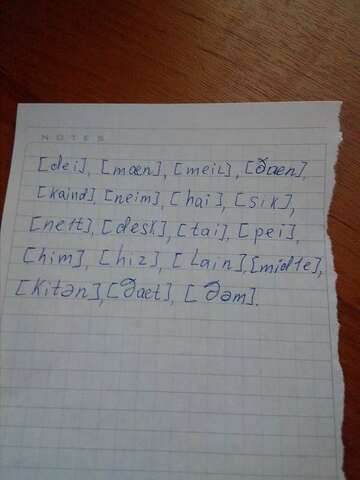 NOTES
[dei], [mæn], [meil], [ðæn],
[kaind], [neim], [hai], [sik],
[nelt], [desk], [tai], [pei],
[him], [hiz], [Lain], [midle],
[Kitən], [ðaet], [ðəm].